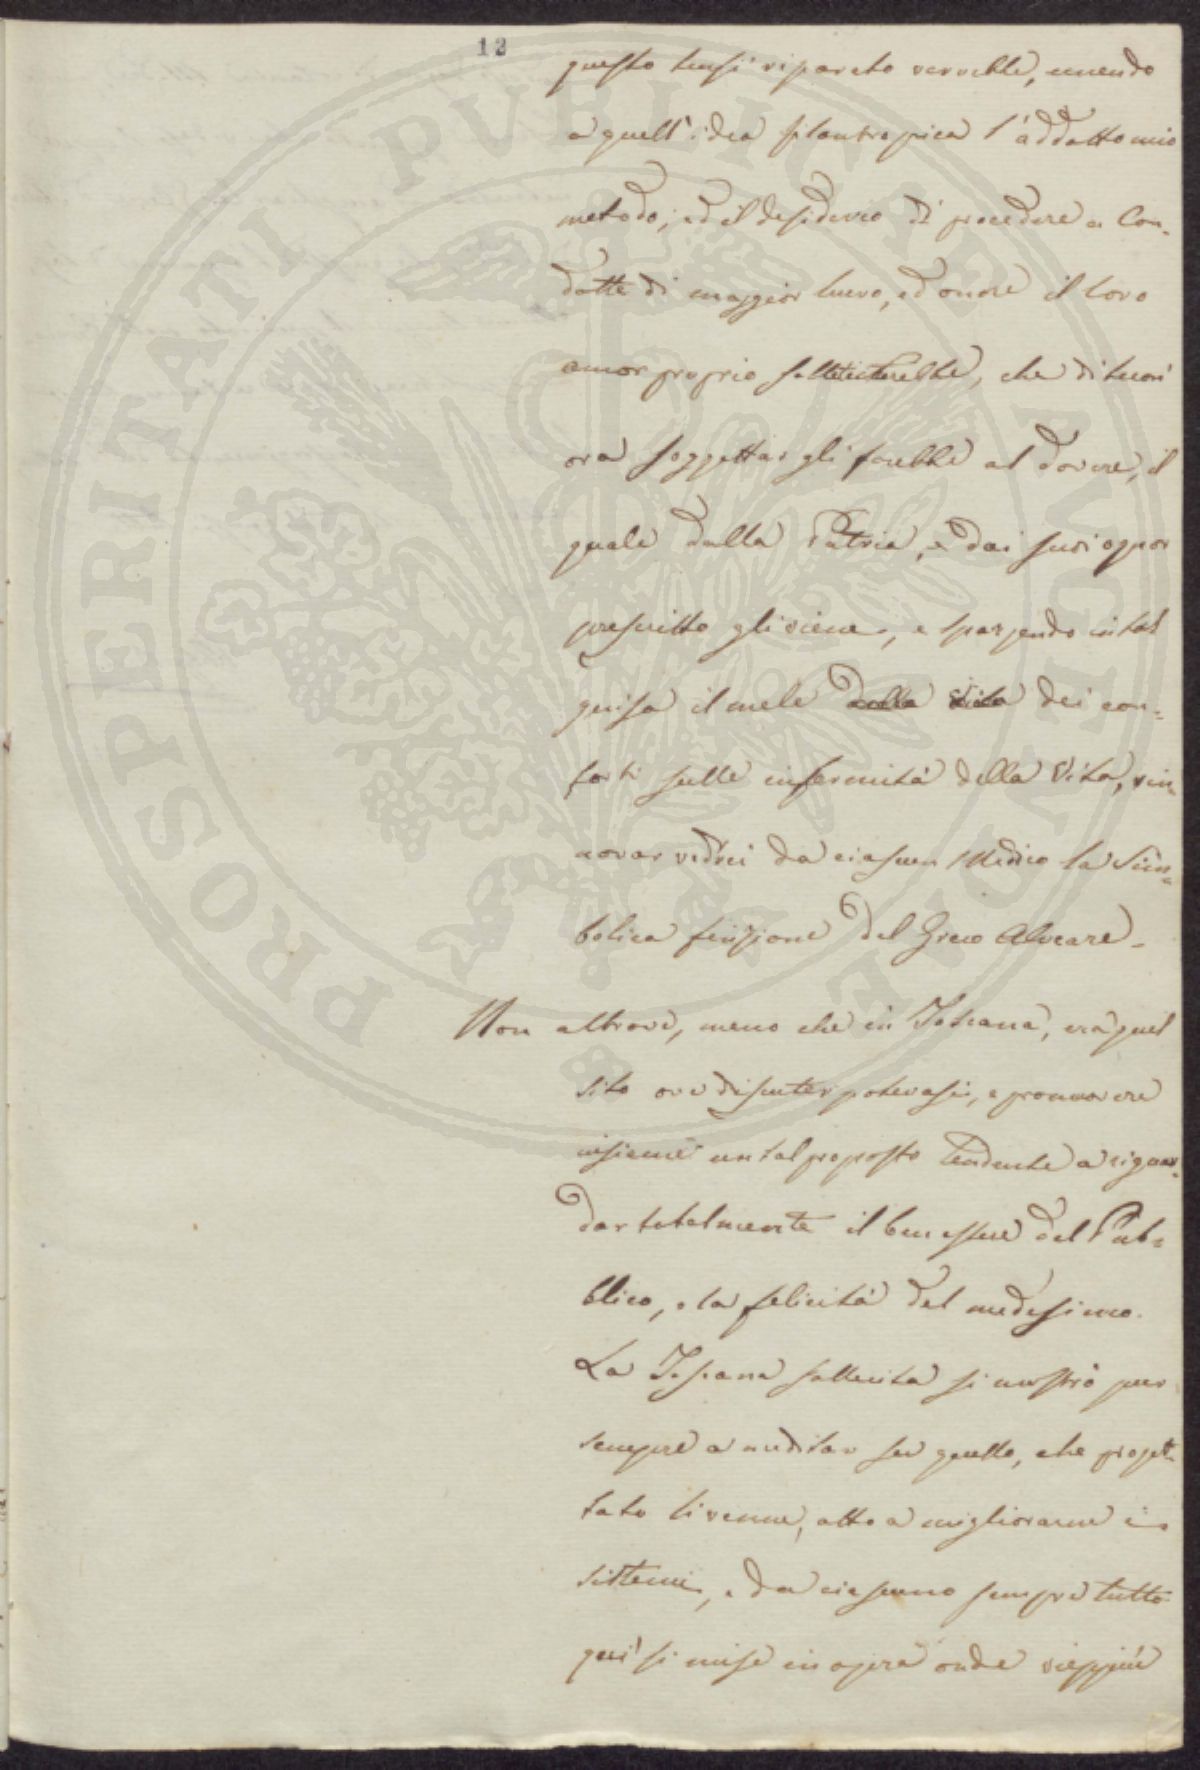 12
questo tensi riparato verrebbe, unendo
a quell'idea filantropica l'addatto mio
metodo; ed il desiderio di procedere a Con-
dotte di maggior lucro, ed onore il loro
amor proprio solleticterebbe, che di buon'
ora soggettar gli farebbe al dovere, il
quale dalla Patria, e dai suoi ognor
prescritto gli viene, e spargendo in tal
guisa il mele dalla Vita dei con-
forti sulle infermità della Vita, rin-
novar vedrei da ciascun Medico la Sim-
bolica finzione del Greco Alveare.
Non altrove, meno che in Toscana, era quel
sito ove discuter potevasi, e promuovere
insieme un tal proposto tendente a riguar-
dar totalmente il ben essere del Pub-
blico, e la felicità del medesimo.
La Toscana sollecita si mostrò pur
sempre a meditar su quello, che proget-
tato li venne, atto a migliorarne i
sistemi, e da ciascuno sempre tutto
quì si mise in opera onde vieppiù
PROSPERITATI PUBLICAE AUGENDAE